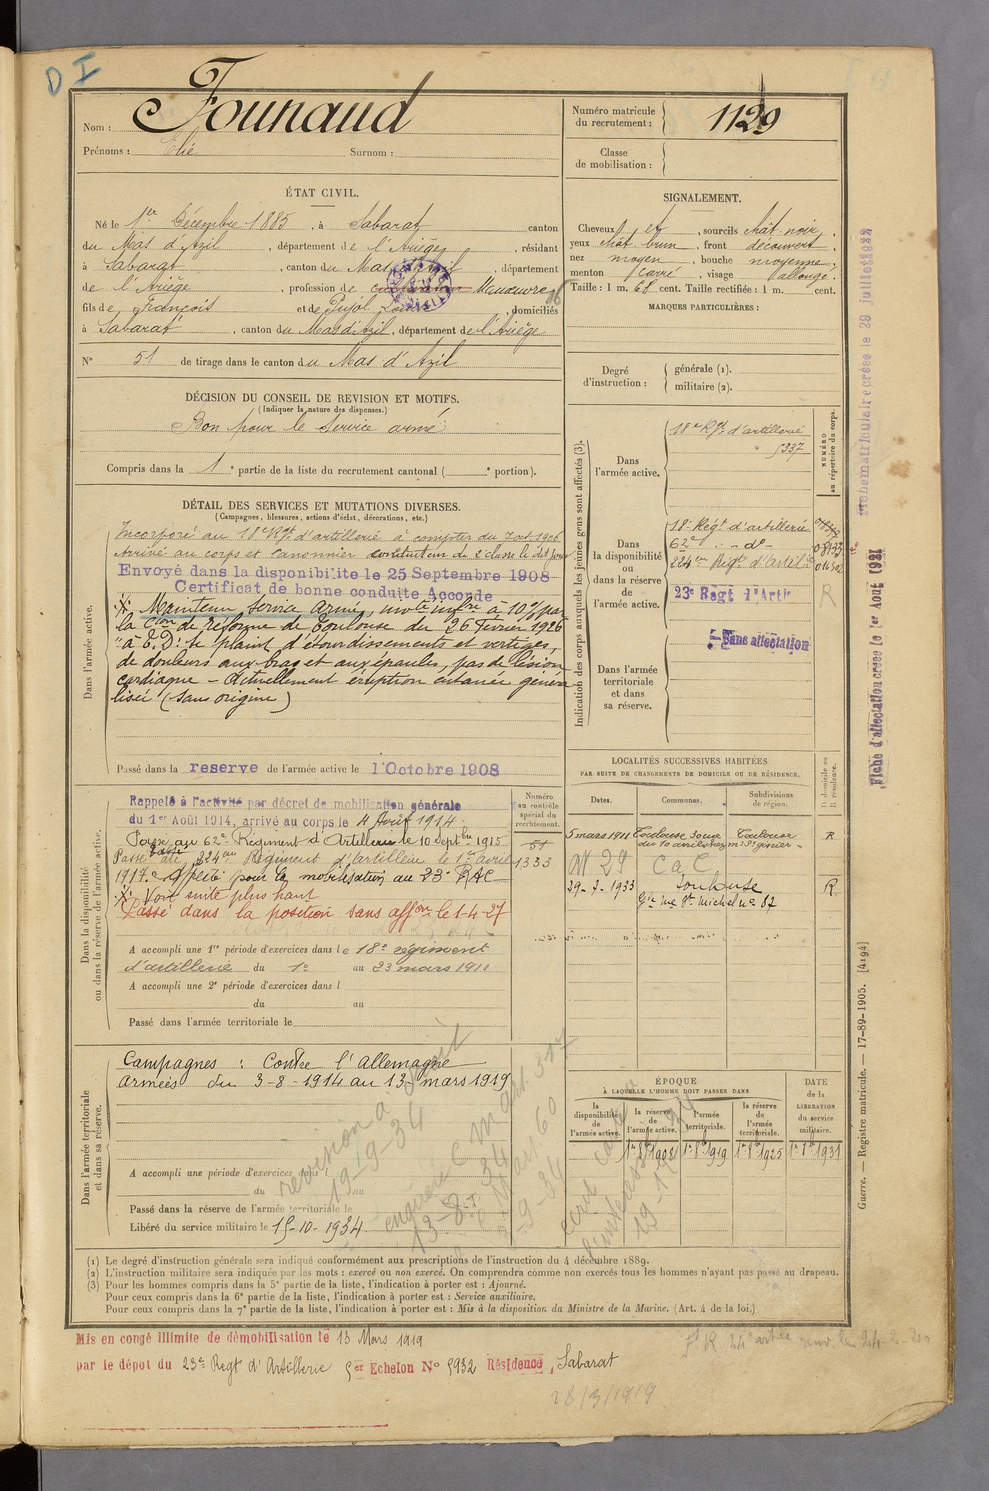 D I
Nom : Founaud
Prénoms : Elie Surnom :
Numéro matricule du recrutement : 1129
Classe de mobilisation :
ÉTAT CIVIL.
Né le 1er Décembre 1885, à Sabarat canton
du Mas d'Azil, département de l'Ariège, résidant
à Sabarat, canton du Mas d'Azil, département
de l'Ariège, profession de cultivateur Manœuvre
fils de François et de Pujol Louise, domiciliés
à Sabarat, canton du Mas d'Azil, département de l'Ariège
N° 51 de tirage dans le canton du Mas d'Azil
SIGNALEMENT.
Cheveux et, sourcils chât-noir,
yeux chât-brun, front découvert,
nez moyen, bouche moyenne,
menton carré, visage allongé.
Taille : 1 m. 68 cent. Taille rectifiée : 1 m. cent.
MARQUES PARTICULIÈRES :
Degré d'instruction : générale (1).
militaire (2).
DÉCISION DU CONSEIL DE REVISION ET MOTIFS.
(Indiquer la nature des dispenses.)
Bon pour le Service armé
Compris dans la 1e partie de la liste du recrutement cantonal ( e portion).
DÉTAIL DES SERVICES ET MUTATIONS DIVERSES.
(Campagnes, blessures, actions d'éclat, décorations, etc.)
Dans l'armée active.
Incorporé au 18e Rgt d'artillerie à compter du 7 oct. 1906
Arrivé au corps et canonnier conducteur de 2e classe le dit jour
Envoyé dans la disponibilite le 25 Septembre 1908
Certificat de bonne conduite Accorde
Maintenu Service Armé, inv.té infre à 10% par
la Cion de réforme de Toulouse du 26 Février 1926
à E.D : se plaint d'étourdissements et vertiges,
de douleurs aux bras et aux épaules, pas de lésion
cardiaque - Actuellement éruption cutanée généra-
lisée (sans origine)
Passé dans la reserve de l'armée active le 1 Octobre 1908
Indication des corps auxquels les jeunes gens sont affectés (3).
NUMÉRO au répertoire du corps.
Dans l'armée active.
18e Rgt d'artillerie
5337
Dans la disponibilité ou dans la réserve de l'armée active.
18e Régt d'artillerie
62e - do -
224me Regt d'Artilie
23e Regt d'Artie R
Sans affectation
Dans l'armée territoriale et dans sa réserve.
Dans la disponibilité ou dans la réserve de l'armée active.
Numéro au contrôle spécial du recrutement.
51
1333
Rappelé à l'activité par décret de mobilisation générale
du 1er Août 1914, arrivé au corps le 4 Août 1914.
Passé au 62e Régiment d'Artillerie le 10 Septbre 1915
Passé au 224me Régiment d'artillerie le 1er avril
1917. Affecté pour la mobilisation au 23e RAC
Voir suite plus haut
Passé dans la position sans affon le 1-4-27
A accompli une 1re période d'exercices dans le 18e régiment
d'artillerie du 1er au 23 mars 1911
A accompli une 2e période d'exercices dans l
du au
Passé dans l'armée territoriale le
LOCALITÉS SUCCESSIVES HABITÉES
PAR SUITE DE CHANGEMENTS DE DOMICILE OU DE RÉSIDENCE.
Dates. Communes. Subdivisions de région. D domicile ou R résidence.
5 mars 1911 Toulouse Toulouse R
29-7-1933 Toulouse R
Gde rue St Michel n° 87
Dans l'armée territoriale et dans sa réserve.
Campagnes : Contre l'Allemagne
armées du 3-8-1914 au 13 mars 1919
A accompli une période d'exercices dans
du au
Passé dans la réserve de l'armée territoriale le
Libéré du service militaire le 15-10-1934.
revision à
19-1934
ÉPOQUE
À LAQUELLE L'HOMME DOIT PASSER DANS
la disponibilité de l'armée active. la réserve de l'armée active. l'armée territoriale. la réserve de l'armée territoriale.
DATE de la LIBÉRATION du service militaire.
1er 8bre 1908 1er 8bre 1919 1er 8bre 1925 1er 8bre 1931
(1) Le degré d'instruction générale sera indiqué conformément aux prescriptions de l'instruction du 4 décembre 1889.
(2) L'instruction militaire sera indiquée par les mots : exercé ou non exercé. On comprendra comme non exercés tous les hommes n'ayant pas passé au drapeau.
(3) Pour les hommes compris dans la 5e partie de la liste, l'indication à porter est : Ajourné.
Pour ceux compris dans la 6e partie de la liste, l'indication à porter est : Service auxiliaire.
Pour ceux compris dans la 7e partie de la liste, l'indication à porter est : Mis à la disposition du Ministre de la Marine. (Art. 4 de la loi.)
Mis en congé illimité de démobilisation le 13 Mars 1919
par le dépôt du 23e Regt d'Artillerie Echelon N° 5932 Résidence Sabarat
28/3/1919
Fiche d'affectation créée le 1er Août 1931
Guerre. — Registre matricule. — 17-89-1905. [4194]